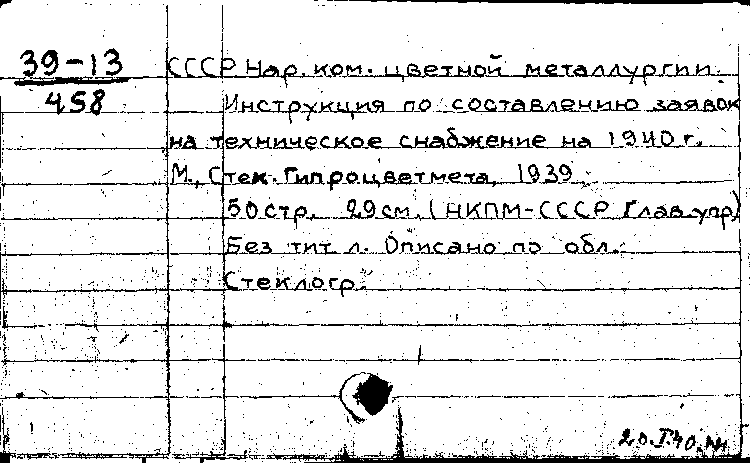 39-13
458
СССР Нар. ком. цветной металлургии.
Инструкция по составлению заявок
на техническое снабжение на 1940 г.
М., Стек. Гипроцветмета, 1939.
50 стр. 29 см. (НКПМ-СССР Глав.упр)
Без тит л. Описано по обл.
Стеклогр.
20.I.40.